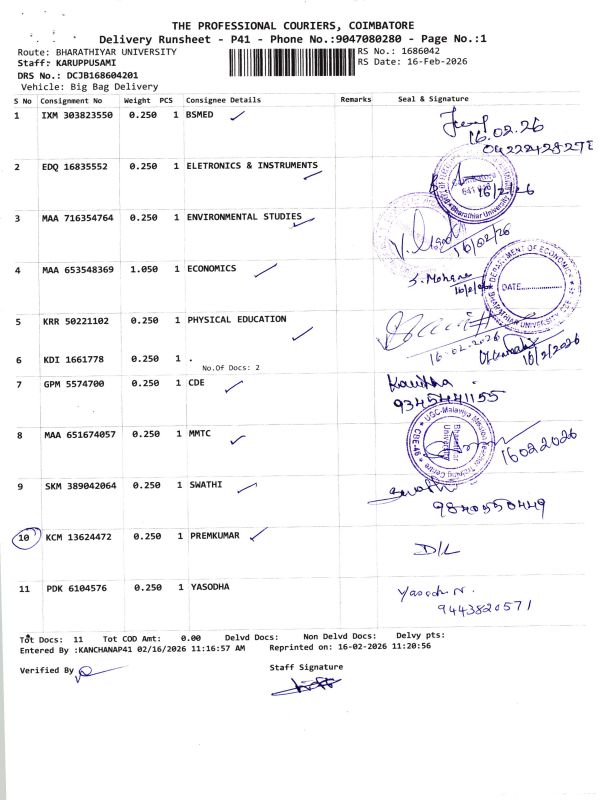 THE PROFESSIONAL COURIERS, COIMBATORE
Delivery Runsheet - P41 - Phone No.:9047080280 - Page No.:1
Route: BHARATHIYAR UNIVERSITY
RS No.: 1686042
Staff: KARUPPUSAMI
RS Date: 16-Feb-2026
DRS No.: DCJB168604201
Vehicle: Big Bag Delivery
S No Consignment No Weight PCS Consignee Details Remarks Seal & Signature
1 IXM 303823550 0.250 1 BSMED
16.02.26
2 EDQ 16835552 0.250 1 ELETRONICS & INSTRUMENTS
16/2/26
3 MAA 716354764 0.250 1 ENVIRONMENTAL STUDIES
16/02/26
4 MAA 653548369 1.050 1 ECONOMICS
S. Mohana
DEPARTMENT OF ECONOMICS
DATE
BHARATHIAR UNIVERSITY
5 KRR 50221102 0.250 1 PHYSICAL EDUCATION
16.02.2026
6 KDI 1661778 0.250 1 .
No.Of Docs: 2
16/2/2026
7 GPM 5574700 0.250 1 CDE
Kavitha
9345441155
8 MAA 651674057 0.250 1 MMTC
UGC-Malaviya Mission Teacher Training Centre
Bharathiar University
CBE-46
16022026
9 SKM 389042064 0.250 1 SWATHI
Swathi
9840550449
10 KCM 13624472 0.250 1 PREMKUMAR
D/L
11 PDK 6104576 0.250 1 YASODHA
Yasodha N.
9443820571
Tot Docs: 11 Tot COD Amt: 0.00 Delvd Docs: Non Delvd Docs: Delvy pts:
Entered By :KANCHANAP41 02/16/2026 11:16:57 AM Reprinted on: 16-02-2026 11:20:56
Verified By
Staff Signature